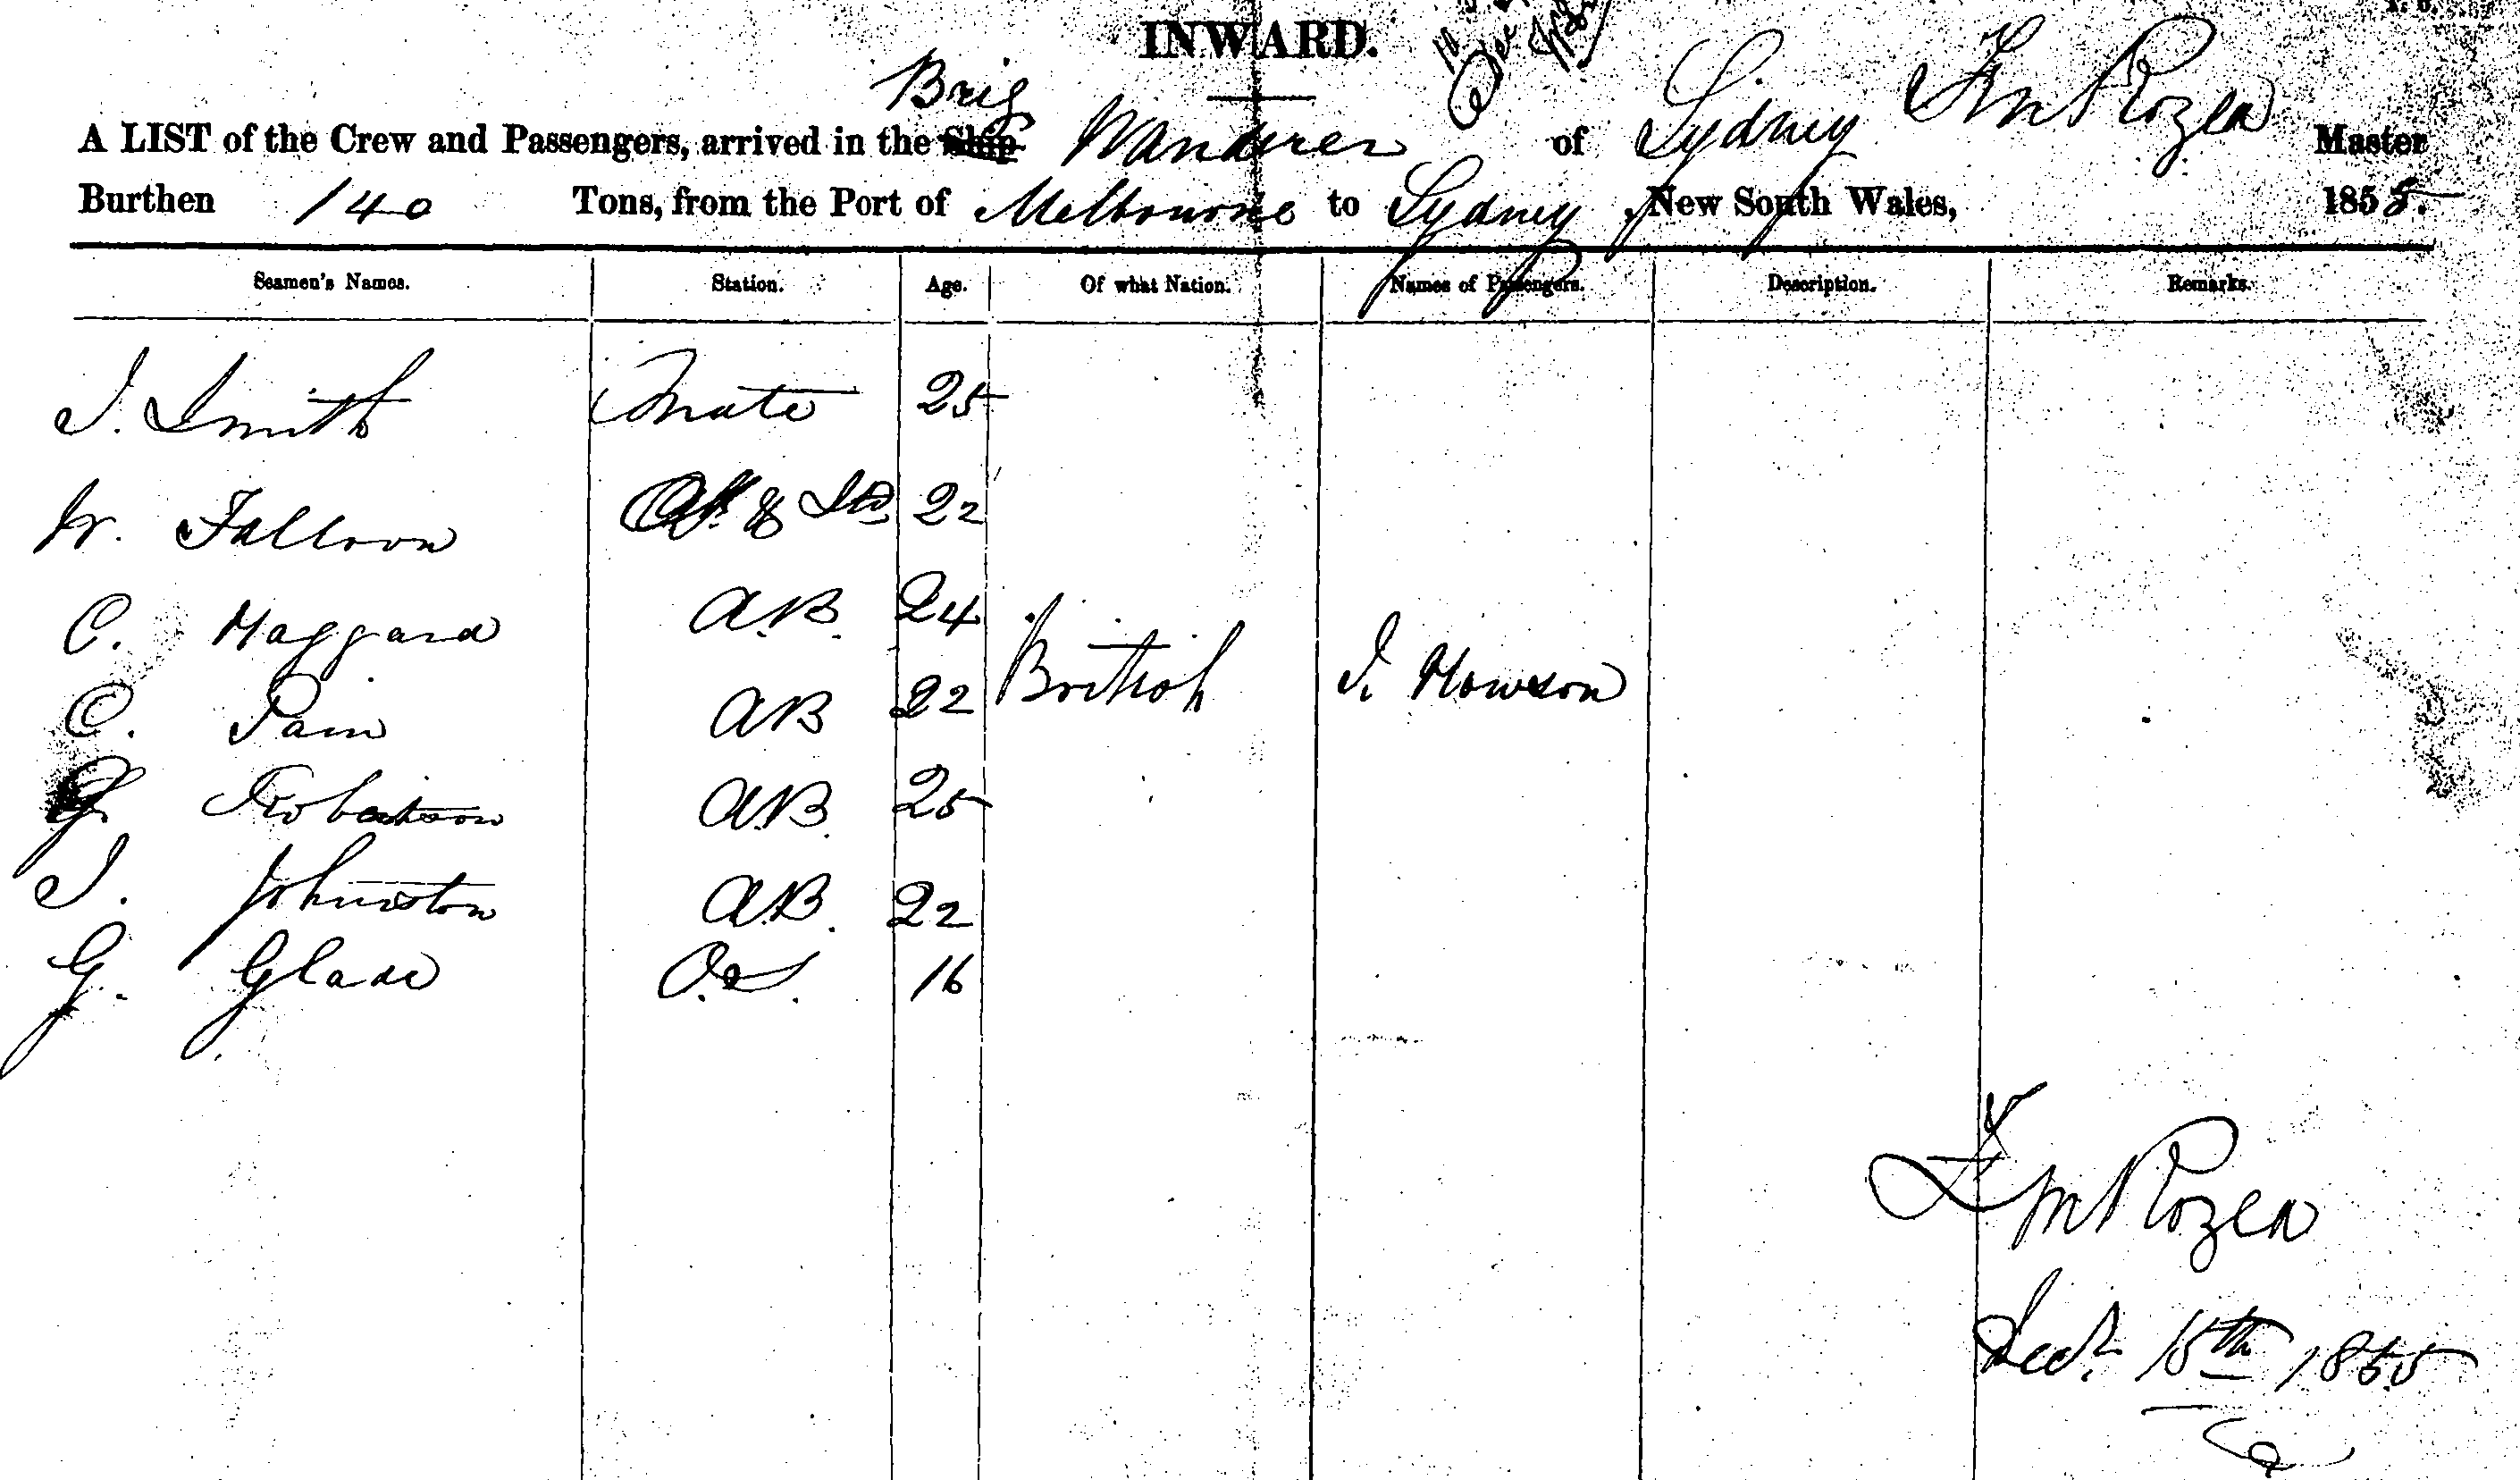 INWARD.
Brig
A LIST of the Crew and Passengers, arrived in the Ship Wanderer of Sydney Fm Rozea Master
Burthen 140 Tons, from the Port of Melbourne to Sydney, New South Wales, 1855.
Seamen's Names. Station. Age. Of what Nation. Names of Passengers. Description. Remarks.
J. Smith Mate 25
W. Falloon & Std 22
C. Haggard A.B. 24
C. Pain AB 22 British J. Howson
Robertson A.B. 25
J. Johnston A.B. 22
G. Glade O.S. 16
Fm Rozea
Decr 15th 1855